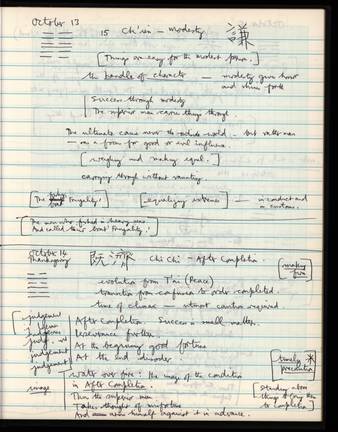 October 13
15 Ch'ien — modesty 謙
[Things are easy for the modest person.]
the handle of character — modesty gives honor
and shine forth
Success through modesty
The superior man carries things through.
The ultimate cause never the outside world — but rather man
— as a force for good or evil influence.
[weighing and making equal.]
carrying through without vaunting.
[The boat Frugality!] [equalizing extremes] — in conduct and
in customs.
The man who fished in heavy seas
And called their boat 'Frugality'!
October 14
Thanksgiving
既濟 Chi Chi — After Completion.
making fire
evolution from T'ai (Peace)
transition from confusion to order completed.
time of climax — utmost caution required
judgement
After Completion Success in small matters.
Perseverance furthers
At the beginning good fortune
judgement
At the end disorder!
judgement
image
water over fire: the image of the condition
in After Completion.
Thus the superior man
Takes thought of misfortune
And arms himself against it in advance.
timely
precaution